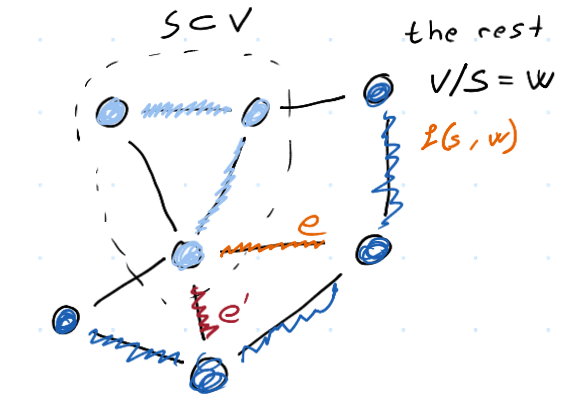 S ⊂ V
the rest
V/S = W
£(s, w)
e
e'